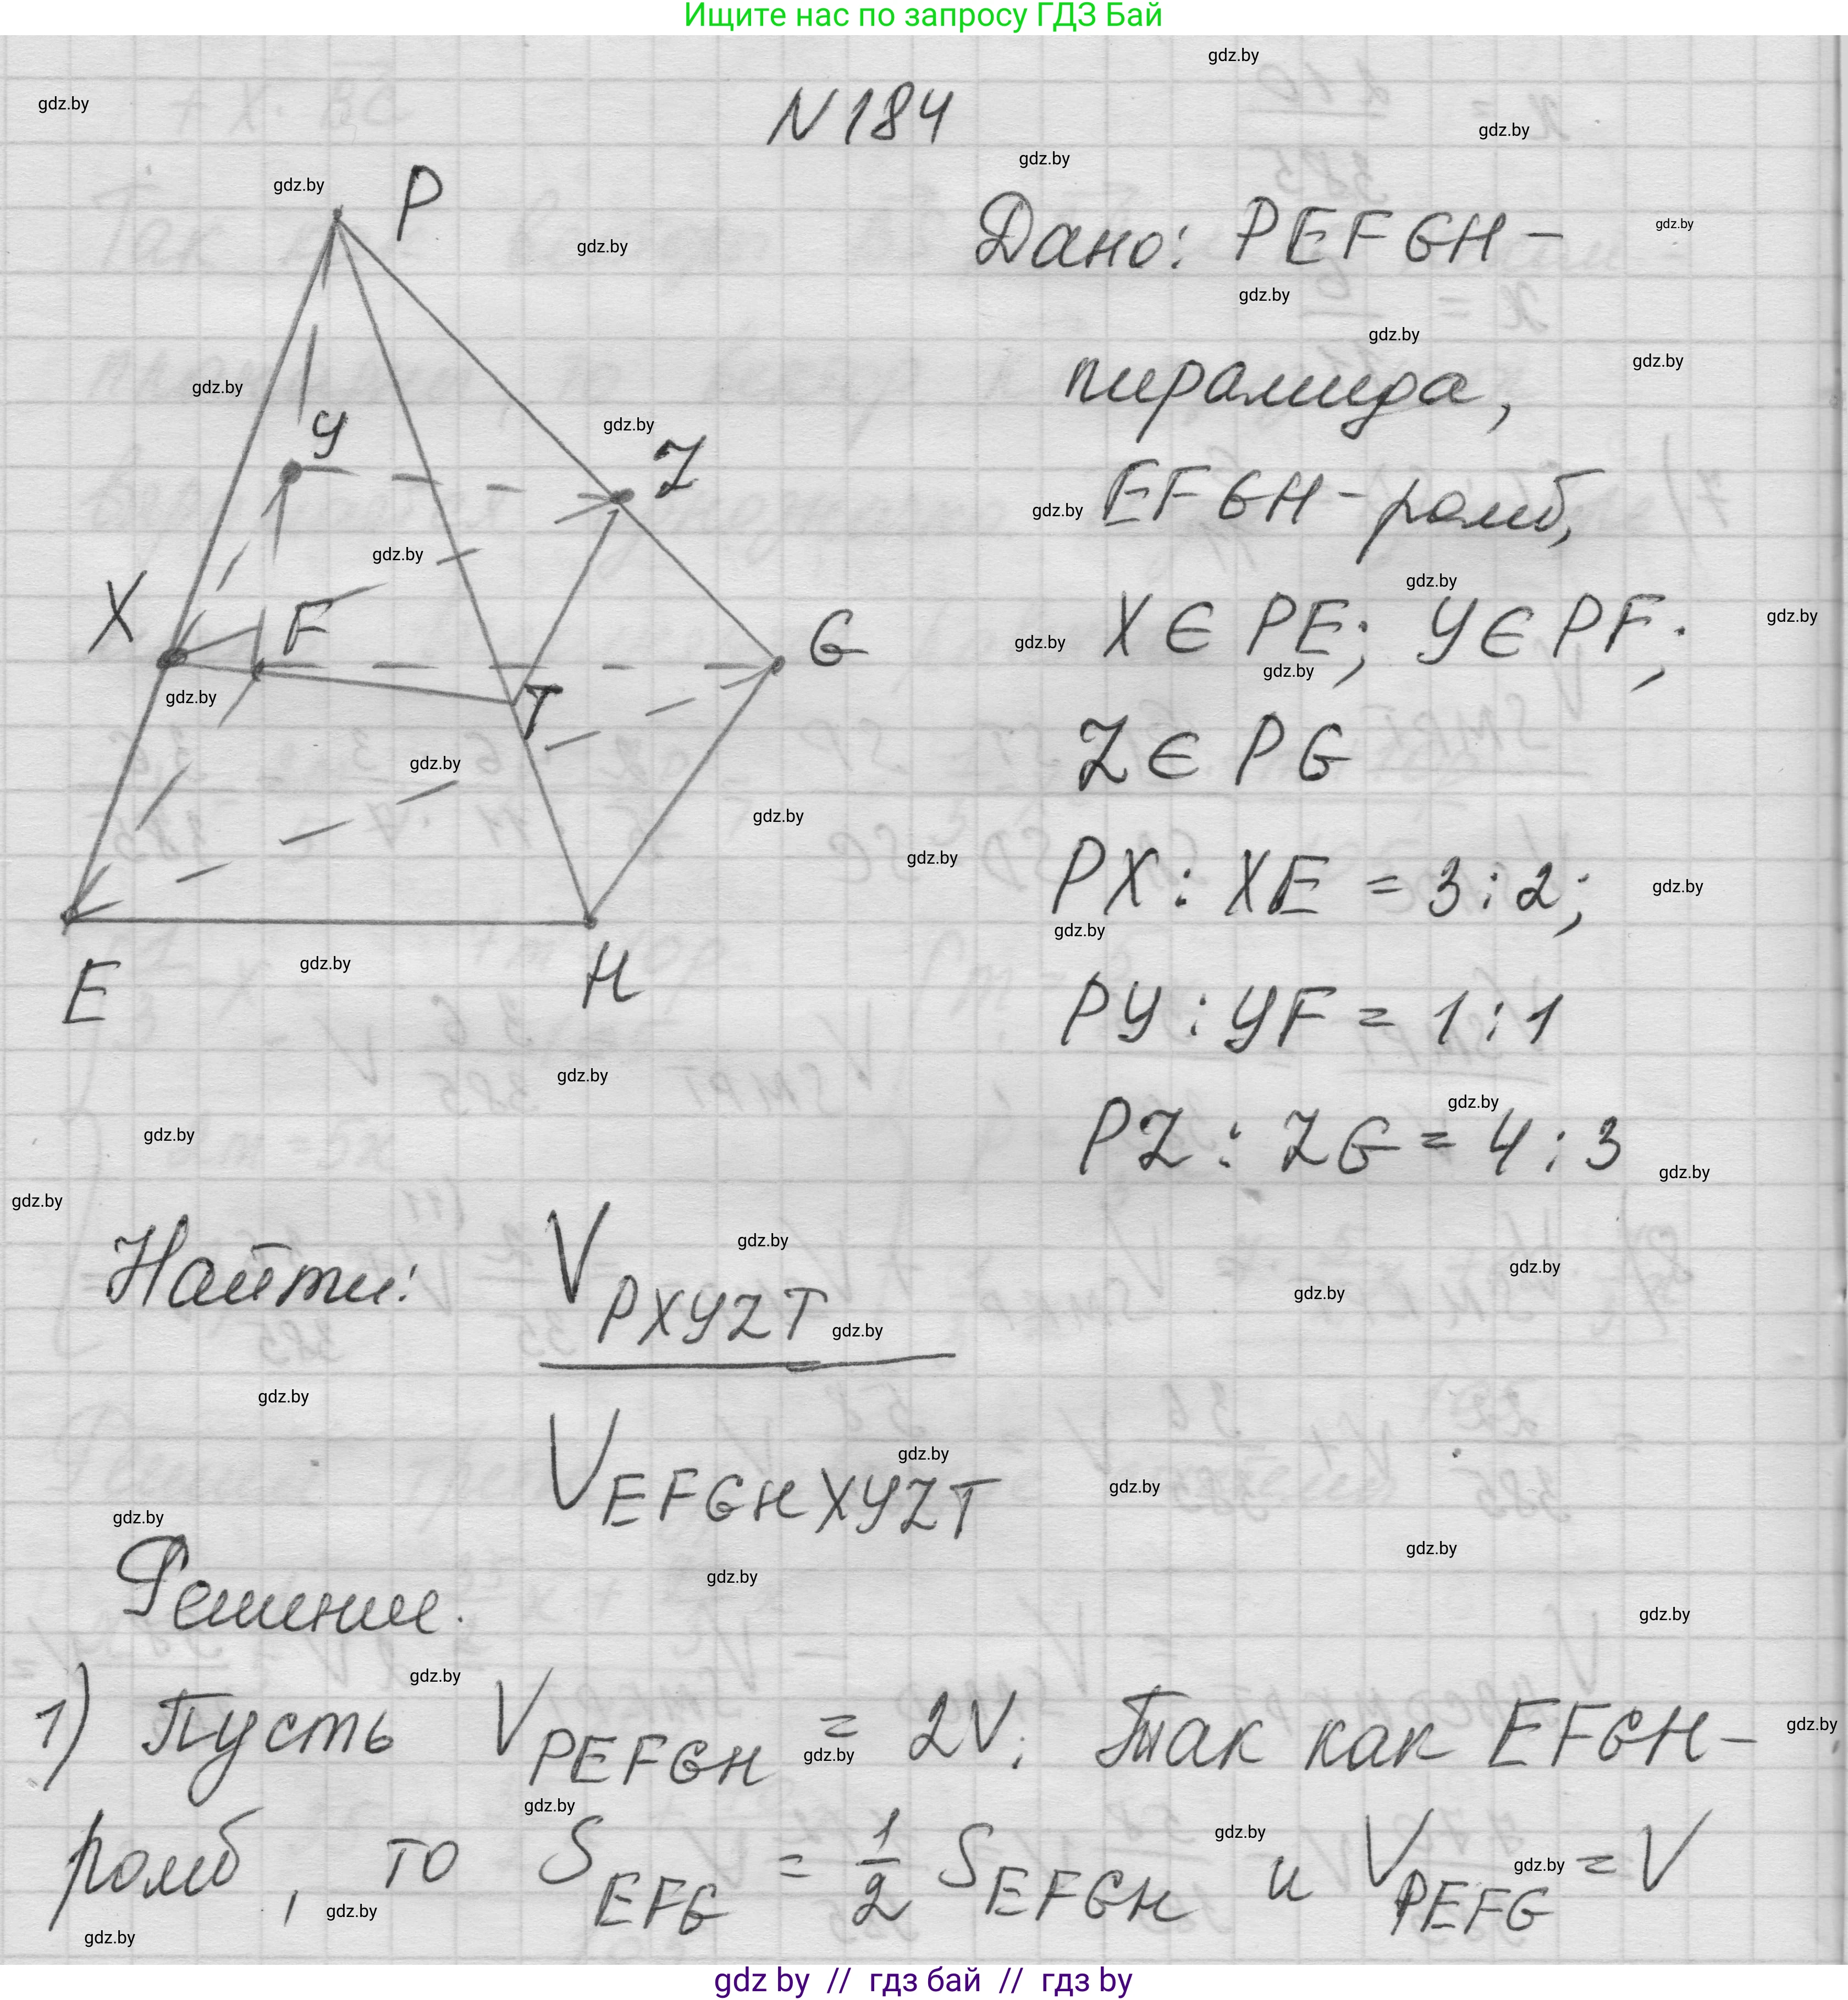 Ищите нас по запросу ГДЗ Бай
N 184
P
Y
Z
X
F
G
T
E
H
Дано: PEFGH -
пирамида,
EFGH - ромб,
X ∈ PE; Y ∈ PF;
Z ∈ PG
PX : XE = 3 : 2;
PY : YF = 1 : 1
PZ : ZG = 4 : 3
Найти: V PXYZT
V EFGHXYZT
Решение.
1) Пусть V PEFGH = 2V. Так как EFGH -
ромб, то S EFG = 1/2 S EFGH и V PEFG = V
gdz by // гдз бай // гдз by
gdz.by